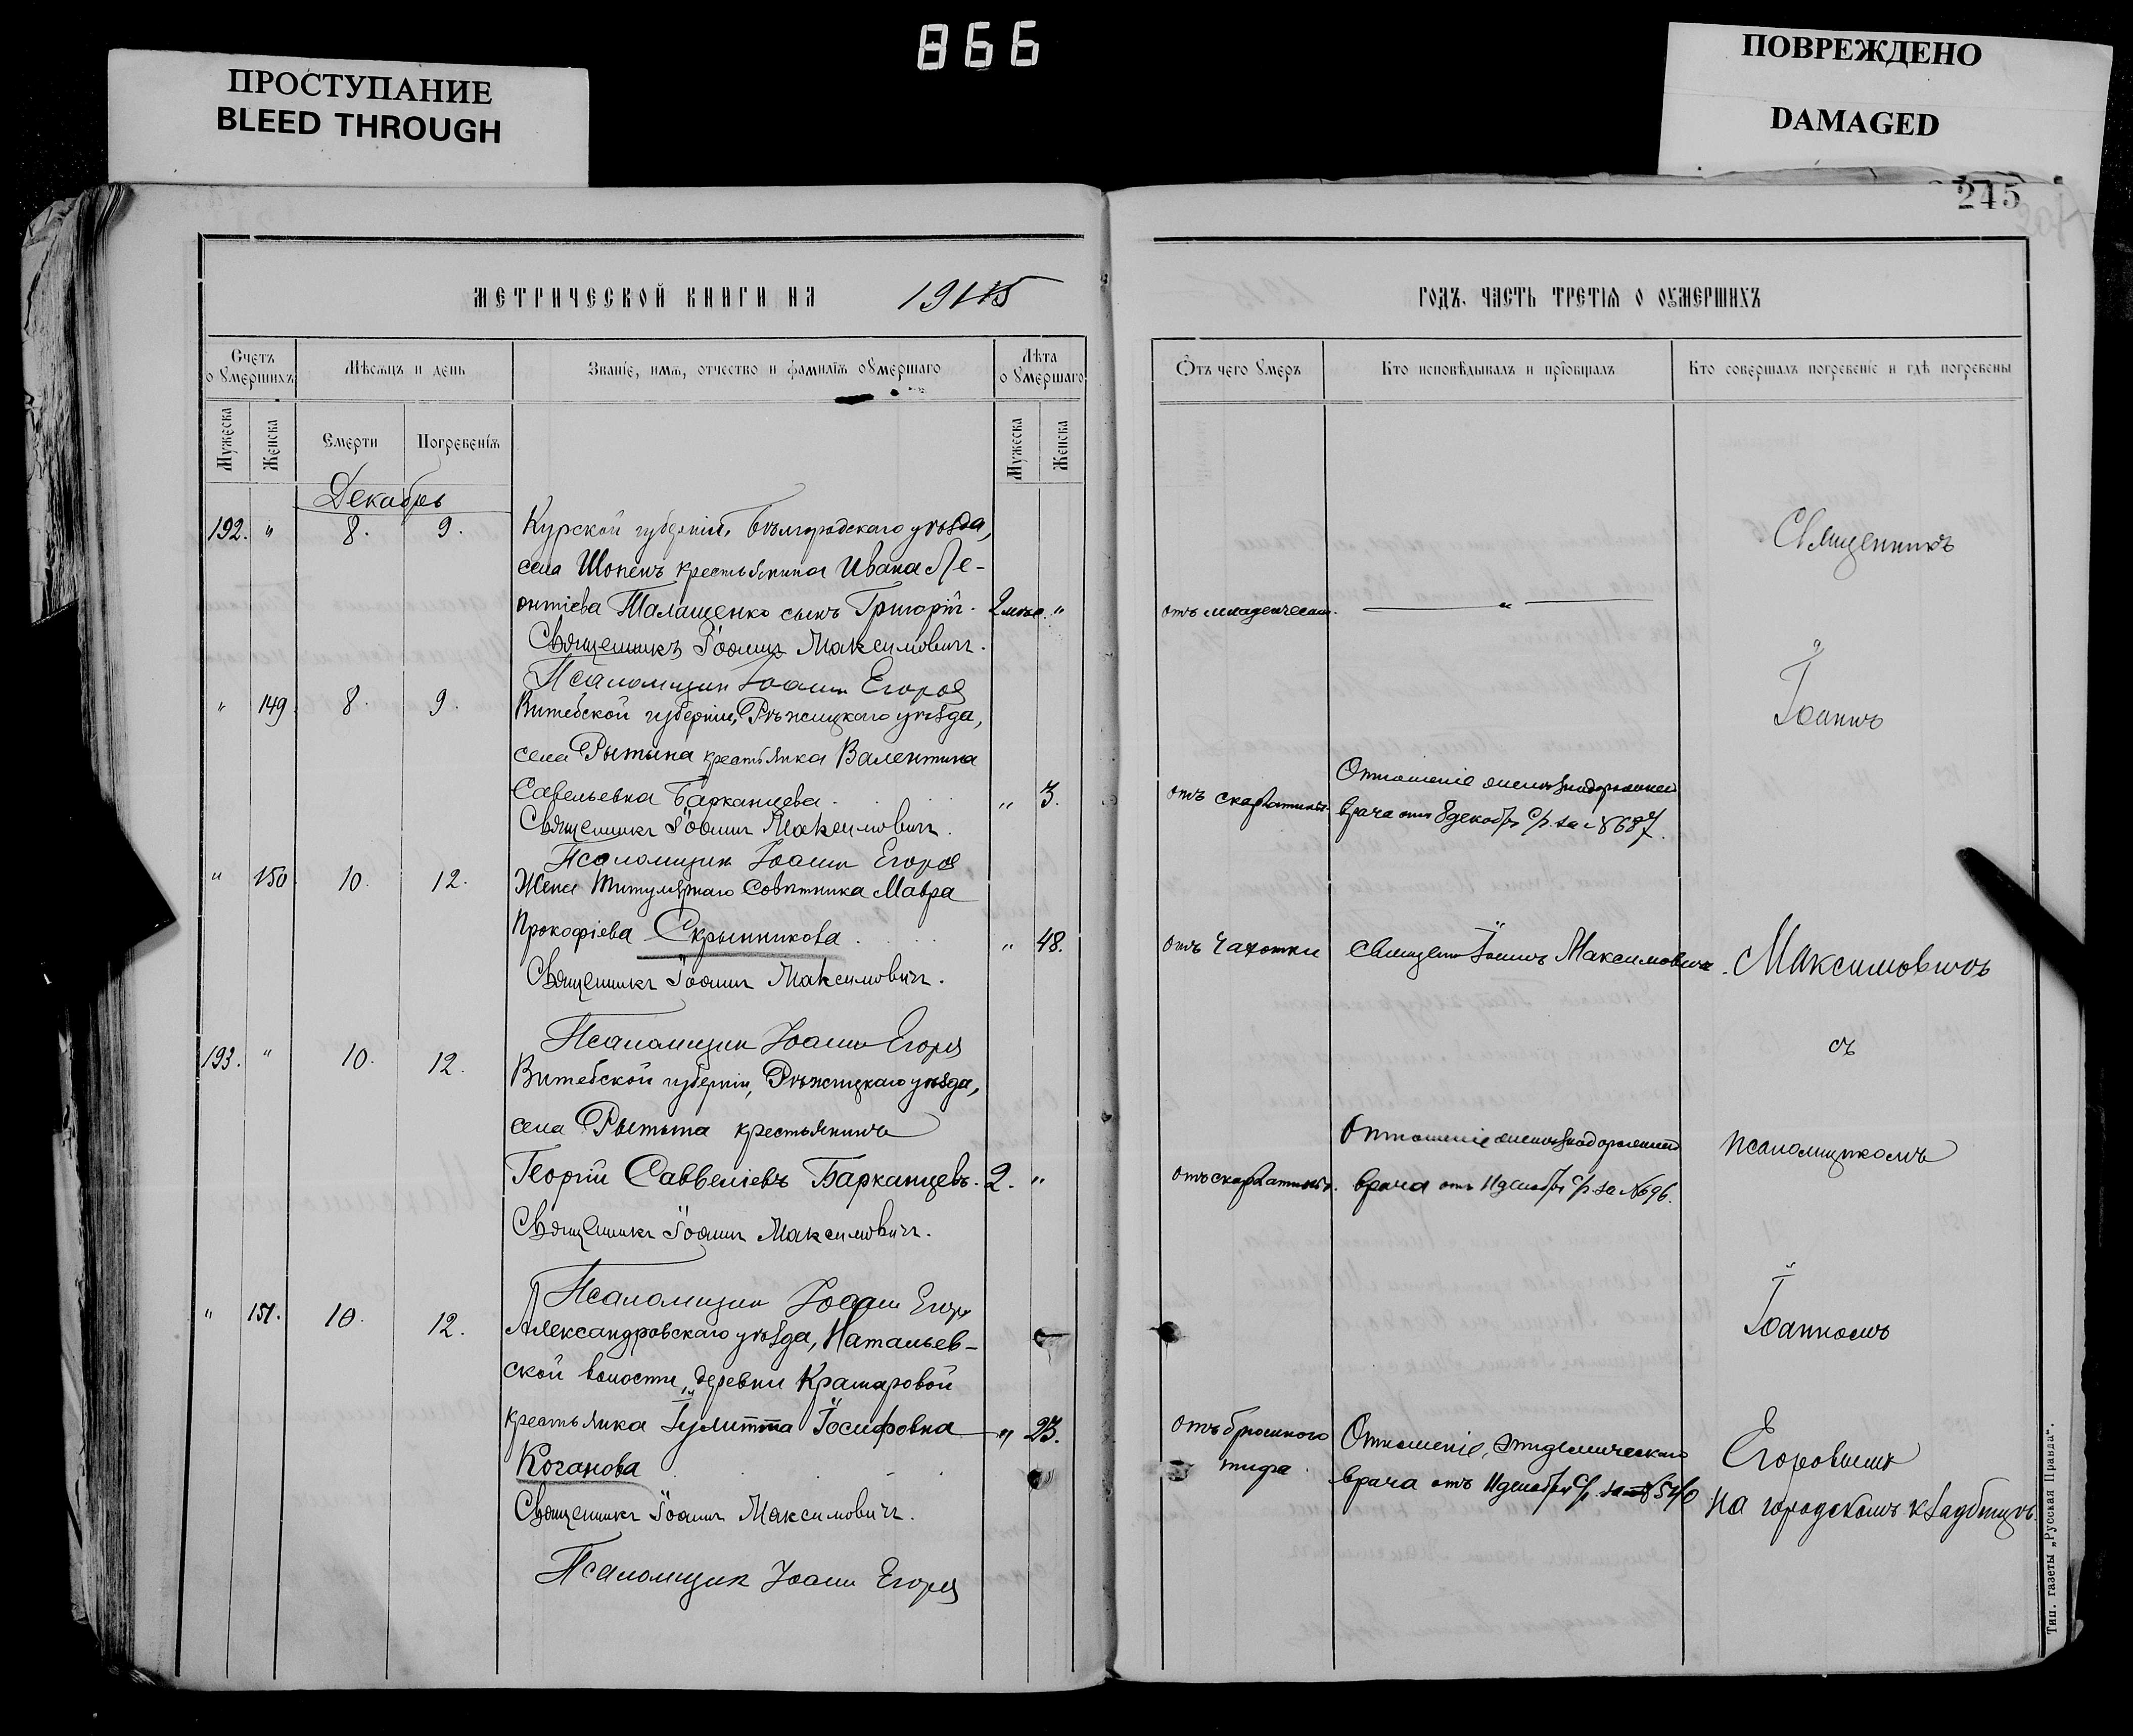 866
ПРОСТУПАНИЕ
BLEED THROUGH
ПОВРЕЖДЕНО
DAMAGED
245
МЕТРИЧЕСКОЙ КНИГИ НА 1915
ГОДЪ. ЧАСТЬ ТРЕТІЯ О ОУМЕРШИХЪ
Счетъ оумершихъ
Мѣсяцъ и день
Званіе, имя, отчество и фамилія оумершаго
Лѣта оумершаго
Отъ чего умеръ
Кто исповѣдывалъ и пріобщалъ
Кто совершалъ погребеніе и гдѣ погребены
Мужеска
Женска
Смерти
Погребенія
Мужеска
Женска
Декабрь
192. " 8. 9. Курской губерніи, Бѣлгородскаго уѣзда,
села Шопенъ крестьянина Ивана Ле-
онтіева Талащенко сынъ Григорій. 2 мѣс. " отъ младенческ. "
Священникъ Іоаннъ Максимовичъ.
Псаломщик Іоанн Егоров
" 149. 8. 9. Витебской губерніи, Рѣжицкаго уѣзда,
села Рытына крестьянка Валентина
Савельевна Барканцева. " 3. отъ скарлатины. Отношеніе желѣзнодорожнаго
врача отъ 8 декабря с/г. за № 687.
Священникъ Іоаннъ Максимовичъ.
Псаломщик Іоанн Егоров
" 150 10. 12. Жена Титулярнаго Совѣтника Мавра
Прокофіева Скрынникова. " 48. отъ чахотки Священ. Іоаннъ Максимовичъ.
Священникъ Іоаннъ Максимовичъ.
Псаломщик Іоанн Егоров
193. " 10. 12. Витебской губерніи, Рѣжицкаго уѣзда,
села Рытына крестьянинъ
Георгій Саввеліевъ Барканцевъ. 2. " отъ скарлатины. Отношеніе желѣзнодорожнаго
врача отъ 11 декабря с/г. за № 696.
Священникъ Іоаннъ Максимовичъ.
Псаломщик Іоанн Егоров
" 151. 10. 12. Александровскаго уѣзда, Натальев-
ской волости, деревни Крамаровой
крестьянка Іулитта Іосифовна " 23. отъ брюшного
тифа. Отношеніе эпидемическаго
врача отъ 11 декабря с/г. за № 540
Коганова
Священникъ Іоаннъ Максимовичъ.
Псаломщик Іоанн Егоров
Священникъ
Іоаннъ
Максимовичъ
съ
псаломщикомъ
Іоанномъ
Егоровымъ
на городскомъ кладбищѣ.
Тип. газеты „Русская Правда".